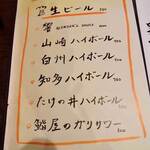 生ビール
響
山崎ハイボール
白州ハイボール
知多ハイボール
たけの井ハイボール
鮨屋のガリサワー